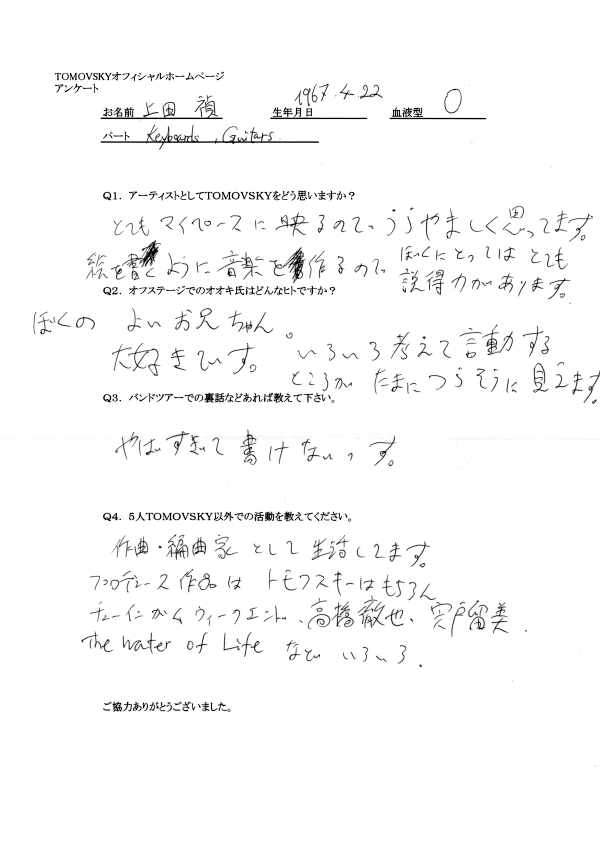 TOMOVSKYオフィシャルホームページ
アンケート
お名前 上田 禎 生年月日 1967.4.22 血液型 O
パート Keyboards, Guitars.
Q1. アーティストとしてTOMOVSKYをどう思いますか?
とてもマイペースに映るので、うらやましく思ってます。
絵を書くように音楽を作るので、ぼくにとってはとても
説得力があります。
Q2. オフステージでのオオキ氏はどんなヒトですか?
ぼくの よいお兄ちゃん。
大好きです。 いろいろ考えて言動する
ところが たまにつらそうに見えます。
Q3. バンドツアーでの裏話などあれば教えて下さい。
やばすぎて書けないっす。
Q4. 5人TOMOVSKY以外での活動を教えてください。
作曲・編曲家として生活してます。
プロデュース作品は トモフスキーはもちろん
チューインガムウィークエンド、高橋徹也、宍戸留美.
The water of Life など いろいろ.
ご協力ありがとうございました。